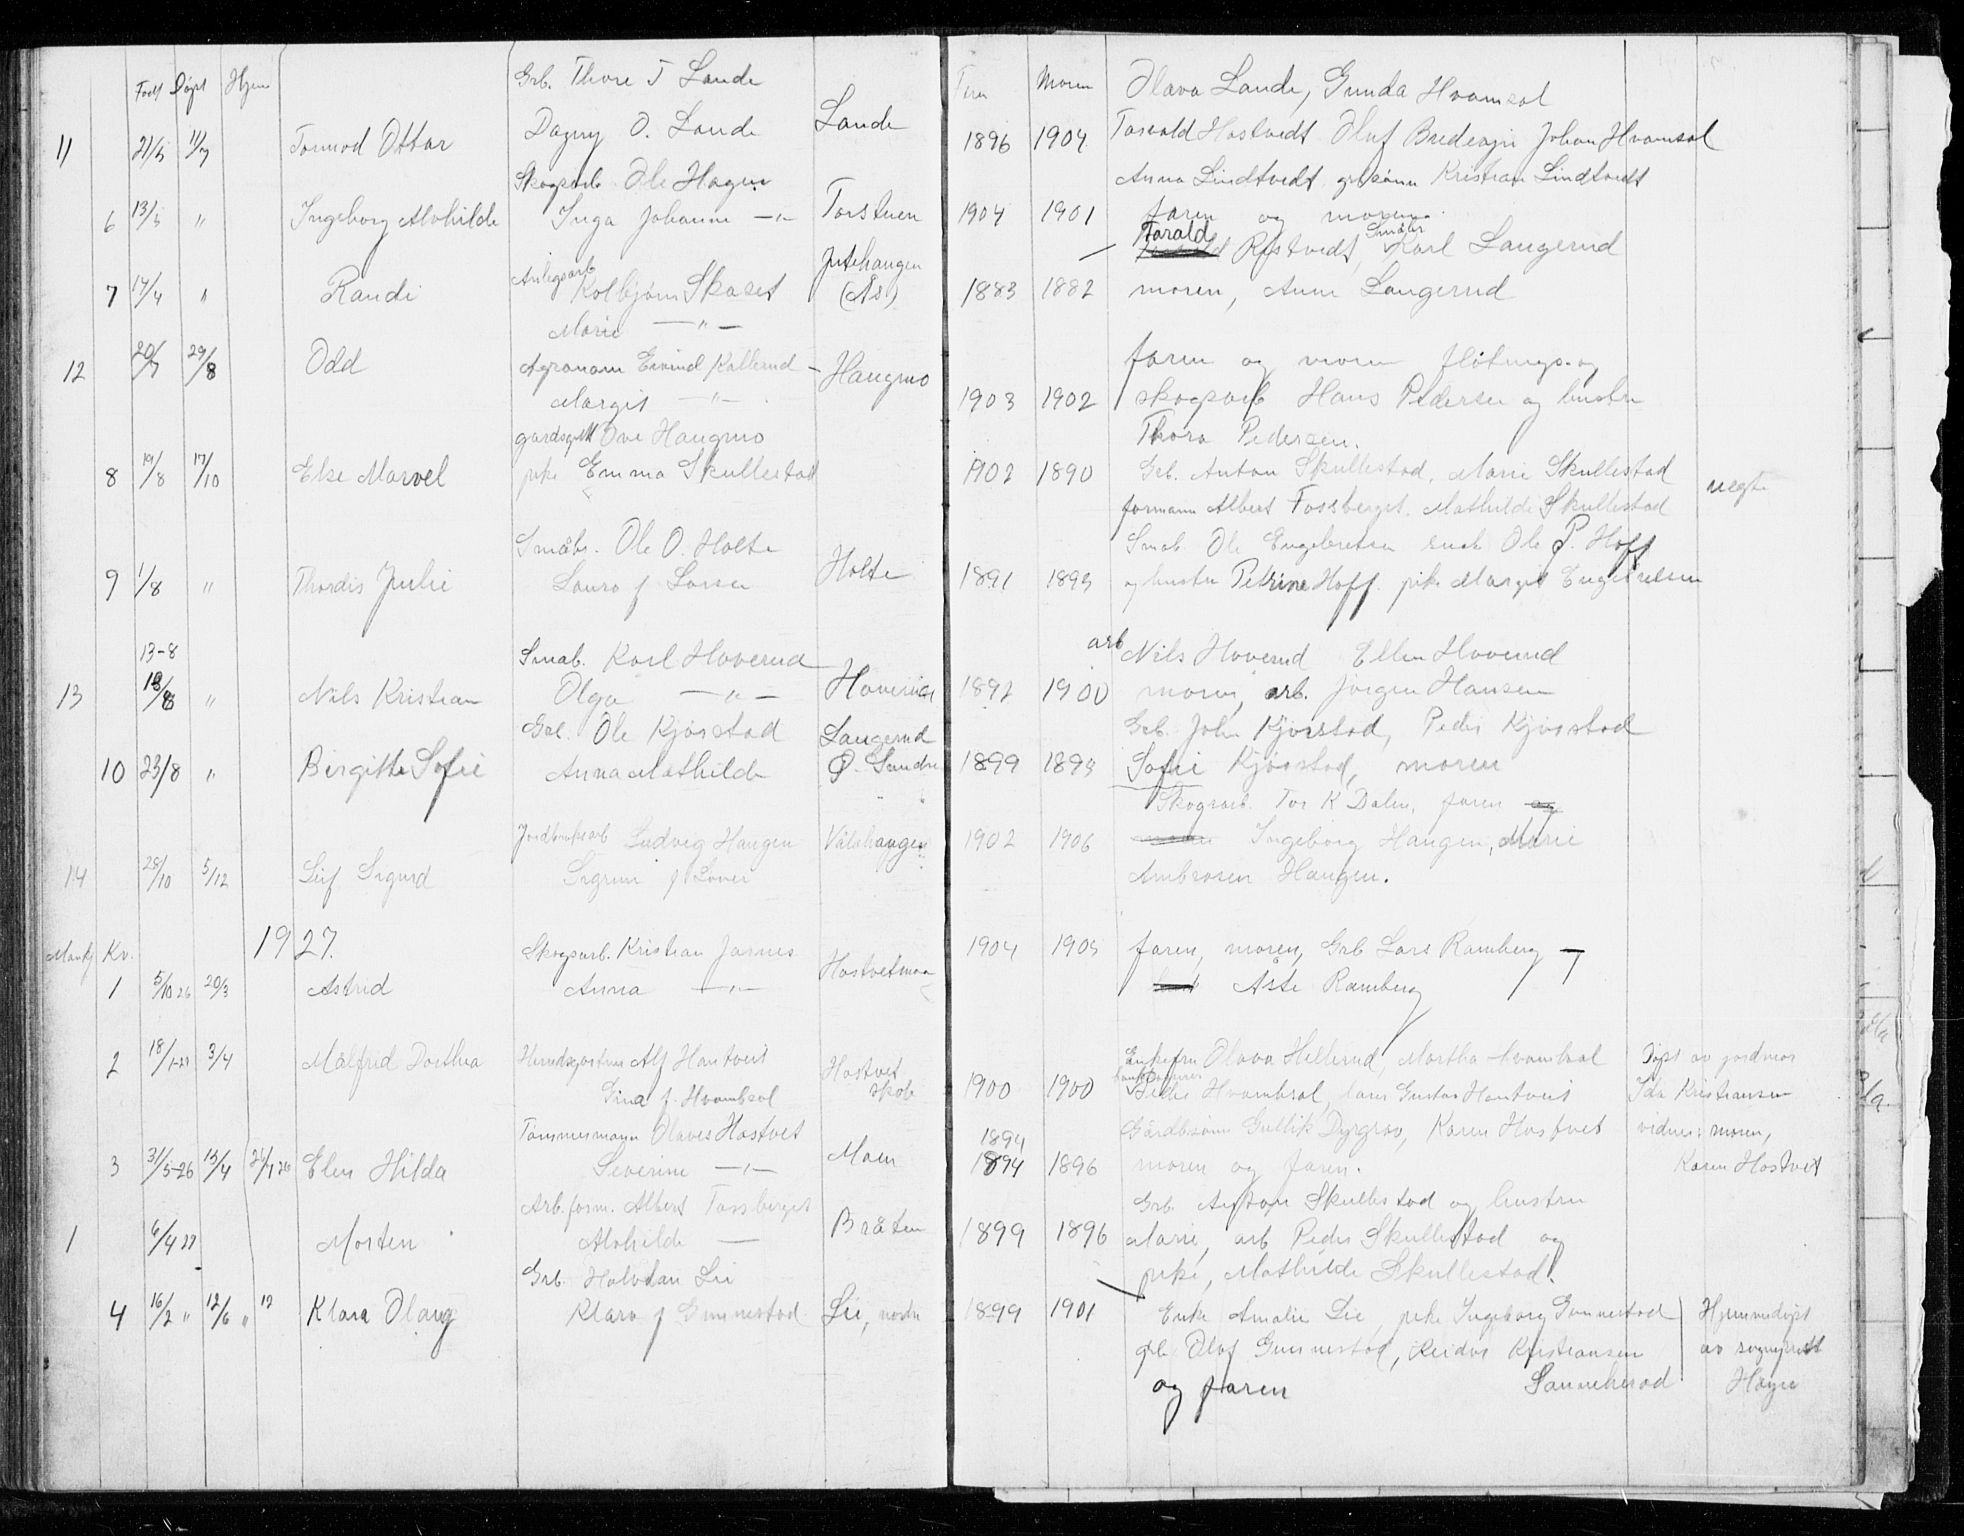 Født Døpt Hjem
Grb. Thore T Lande
11 21/5 11/7 Tormod Ottar Dagny O. Lande Lande
Skogsarb. Ole Hagen
6 13/5 " Ingeborg Alvhilde Inga Johanne —"— Torstuen
Anlegsarb Jutehaugen
7 14/4 " Randi Kolbjørn Skaset (Ås)
Marie —"—
12 20/7 29/8 Odd Agronom Eivind Kallerud - Haugmo
Margit —"—
gardsgutt Ove Haugmo
8 19/8 17/10 Else Marvel pike Emma Skullestad
Småbr. Ole O. Holte
9 1/8 " Thordis Julie Laura f Larsen Holte
13-8
Småb. Karl Hoverud
13 18/8 " Nils Kristian Olga —"— Hoverud
Grb. Ole Kjørstad Langerud
10 23/8 " Birgitte Sofie Anna Mathilde Ø. Sandsv
Jordbruksarb Ludvig Haugen Vålehaugen
14 28/10 5/12 Leif Sigurd Sigrun f Lover
Mankj Kv. 1927.
Skogsarb. Kristian Jarnes Hostvetmoa
1 5/10 26 20/3 Astrid Anna —"—
2 18/1-27 3/4 Målfrid Dorthea Alf Hontveit Hostvet
Gina f. Hvambsal skole
Tømmermann Olaves Hostvet
3 31/5-26 13/4 Elen Hilda Severine —"— Moen
Arb.form. Albert Fossberget
1 6/4 27 Morten Alvhilde — Bråten
Grb. Halvdan Lie
4 16/2 " 12/6 " 12 Klara Olaug Klara f Gunnestad Lie, nordre
Faren Moren Olava Lande, Gunda Hvamsal
1896 1904 Torvald Hostvedt Olaf Johan Hvamsal
Anna Lindtvedt grbsønn Kristian Lindtvedt
1904 1901 faren og moren.
Tarald Rostvedt, Småbr Karl Langerud
1883 1882 moren, Anne Langerud
faren og moren fløtnings- og
1903 1902 skogsarb Hans Pedersen og hustru
Thora Pedersen.
1902 1890 Grb. Anton Skullestad, Marie Skullestad uegte
formann Albert Fossberget. Mathilde Skullestad
Småb Ole Engebretsen Ole P. Hoff
1891 1893 og hustru Petrine Hoff. pike Margit Engebretsen
arb Nils Hoverud Ellen Hoverud
1892 1900 moren, arb. Jørgen Hansen
Grb. John Kjørstad, Peder Kjørstad
1899 1893 Sofie Kjørstad, moren
Skogsarb. Tor K Dalen, faren og
1902 1906 Ingeborg Haugen, Marie
Ambrosen Haugen.
1904 1905 faren, moren, Grb Lars Ramberg —
Åste Ramberg
Enkefru Olava Hellerud, Martha Hvambsal Døpt av jordmor
1900 1900 Hvambsal, Gustav Hontveit Ida Kristiansen
Gårdbsønn Gullik Dyrgrav, Karen Hostvet vidner: moren,
1894
1894 1896 moren og faren. Karen Hostvet
Grb. Anton Skullestad og hustru
1899 1896 Marie, arb Peder Skullestad og
pike, Mathilde Skullestad.
1899 1901 Enke Amalie Lie, pike Ingeborg Gunnestad Hjemmedøpt
grb. Olaf Gunnestad, Reidar Kristiansen av sogneprest
og faren Sannekerød Høyer